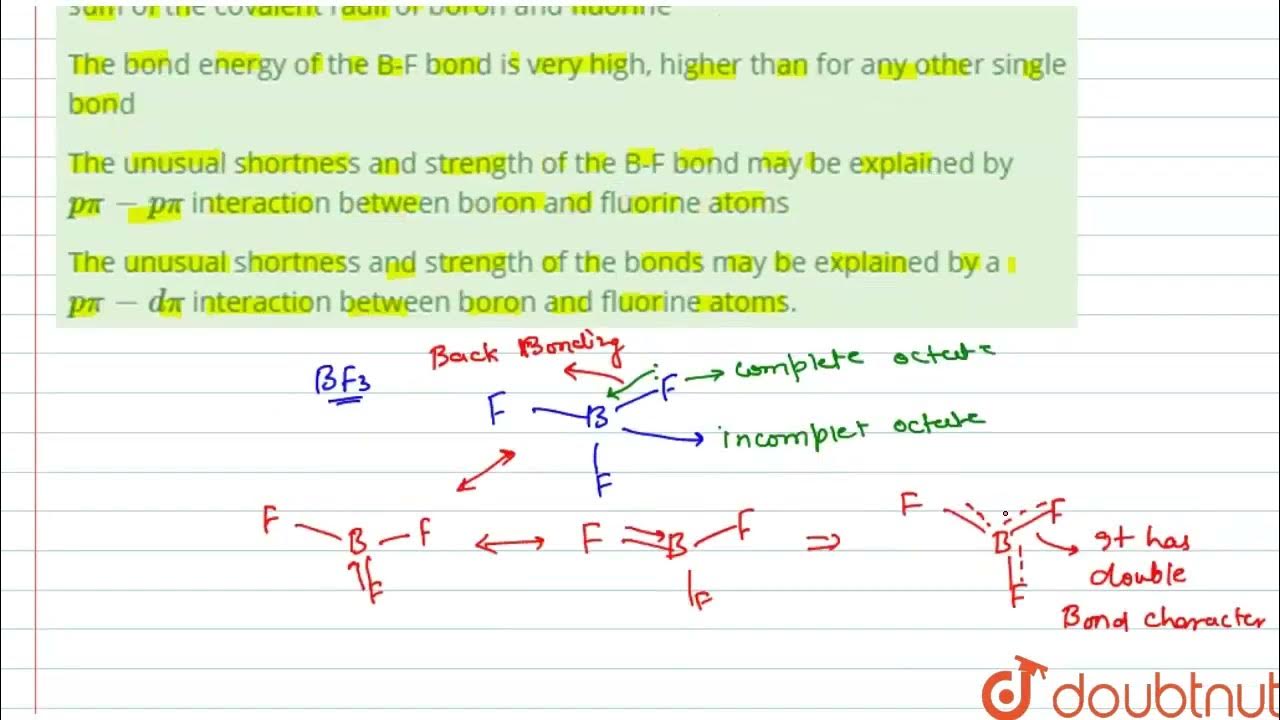 sum of the covalent radii of boron and fluorine
The bond energy of the B-F bond is very high, higher than for any other single
bond
The unusual shortness and strength of the B-F bond may be explained by
pπ − pπ interaction between boron and fluorine atoms
The unusual shortness and strength of the bonds may be explained by a
pπ − dπ interaction between boron and fluorine atoms.
Back Bonding
BF3
F B F
complete octate
incomplet octate
F
F B F
F B F
F B F
F
F
F
It has
double
Bond character
doubtnut